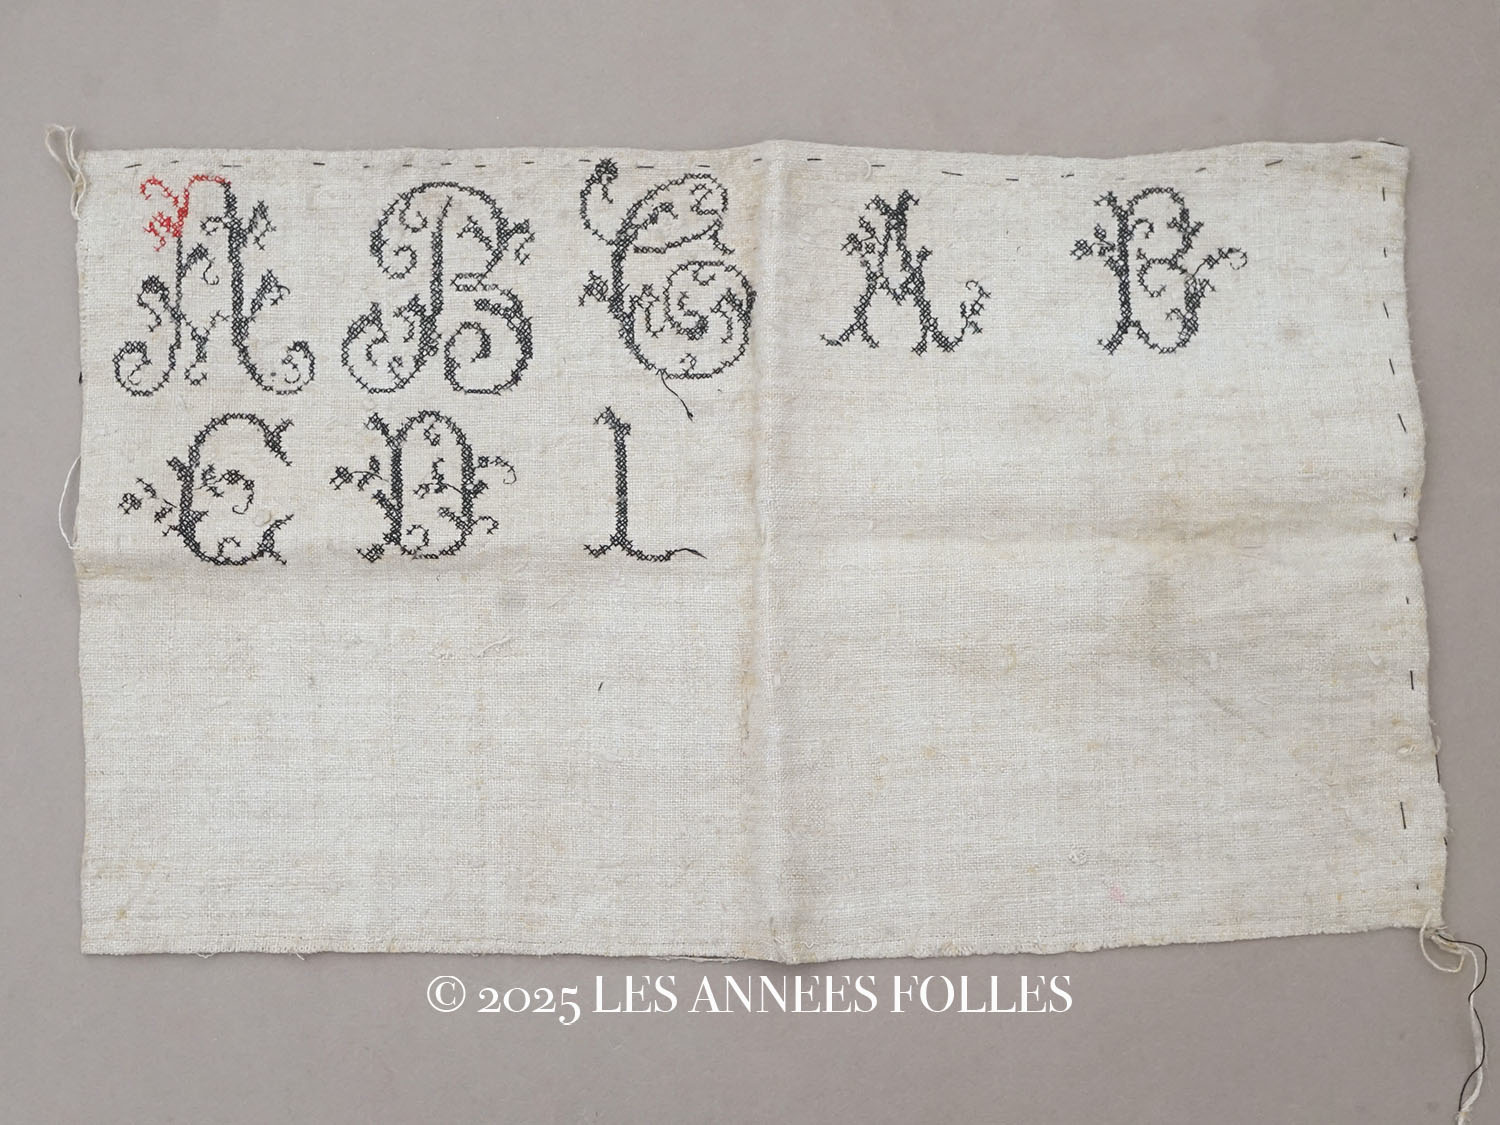 A B C A B
C D I
© 2025 LES ANNEES FOLLES